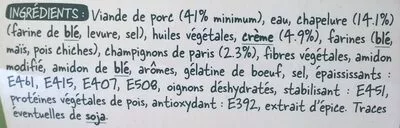 INGRÉDIENTS : Viande de porc (41% minimum), eau, chapelure (14.1%)
(farine de blé, levure, sel), huiles végétales, crème (4.9%), farines (blé,
maïs, pois chiches), champignons de paris (2.3%), fibres végétales, amidon
modifié, amidon de blé, arômes, gélatine de boeuf, sel, épaississants :
E461, E415, E407, E508, oignons déshydratés, stabilisant : E451,
protéines végétales de pois, antioxydant : E392, extrait d'épice. Traces
éventuelles de soja.